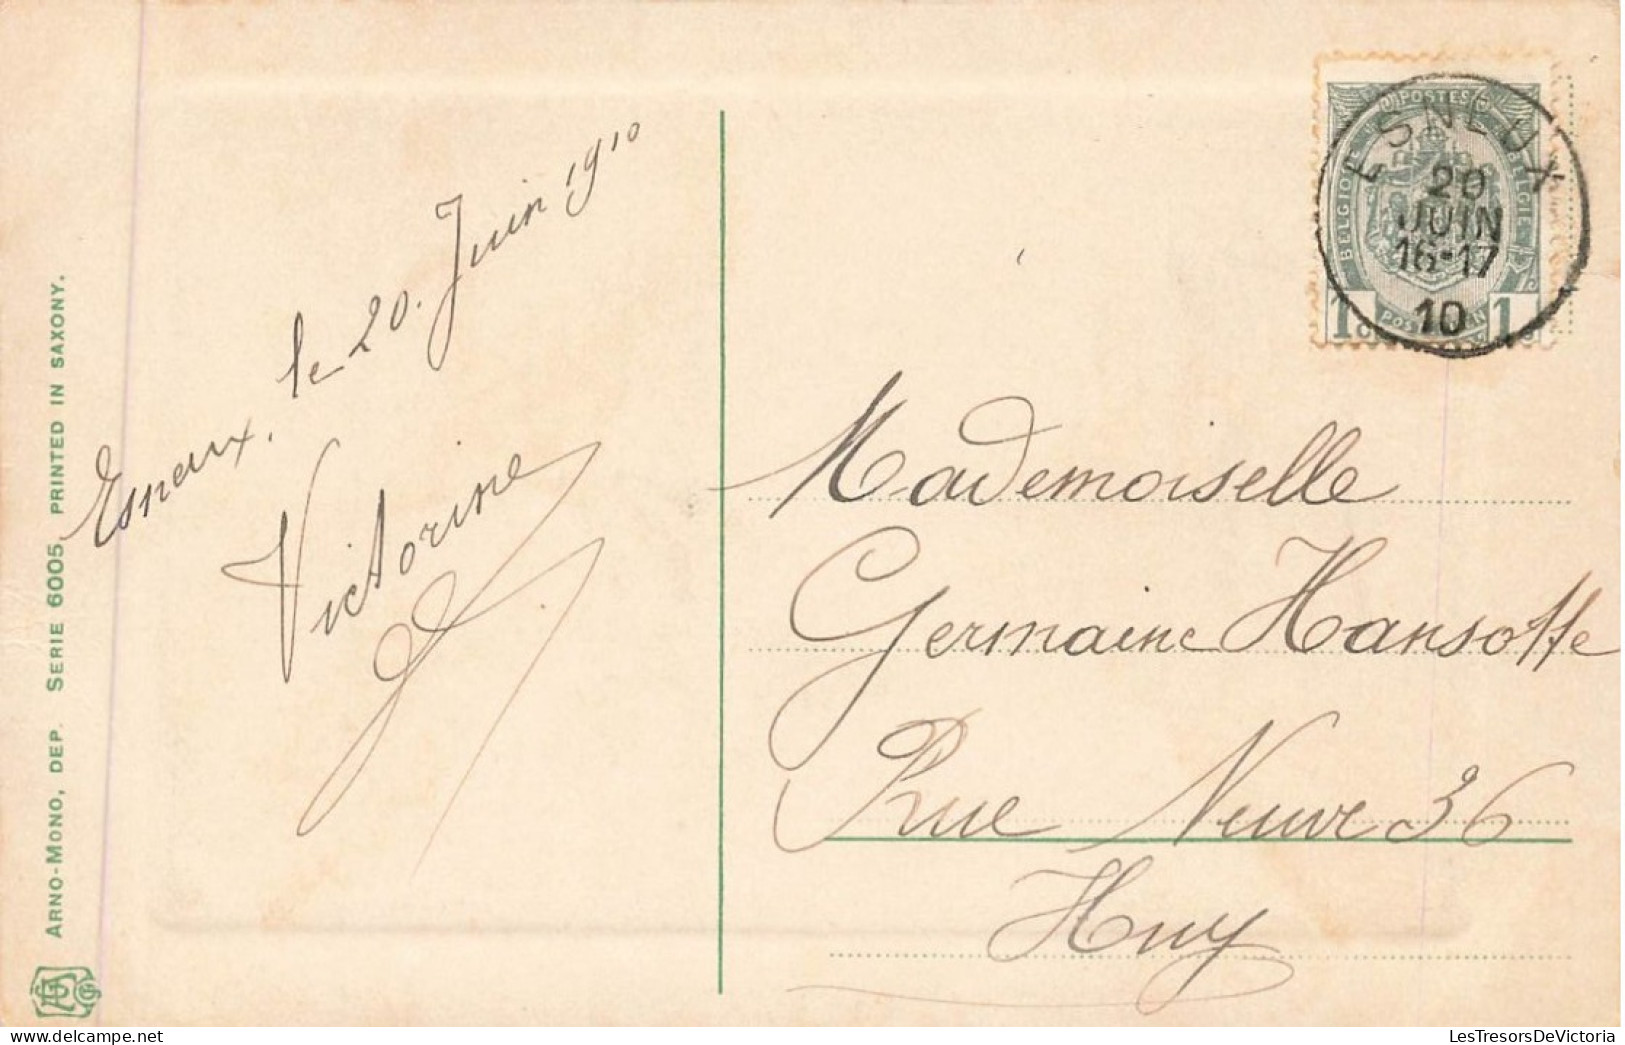 Esneux, le 20. Juin 1910
Victorine
ARNO-MONO, DEP. SERIE 6005, PRINTED IN SAXONY.
POSTES
BELGIQUE
BELGIE
1c
1c
ESNEUX
20
JUIN
16-17
10
Mademoiselle
Germaine Hansotte
Rue Neuve 36
Huy
delcampe.net
LesTresorsDeVictoria